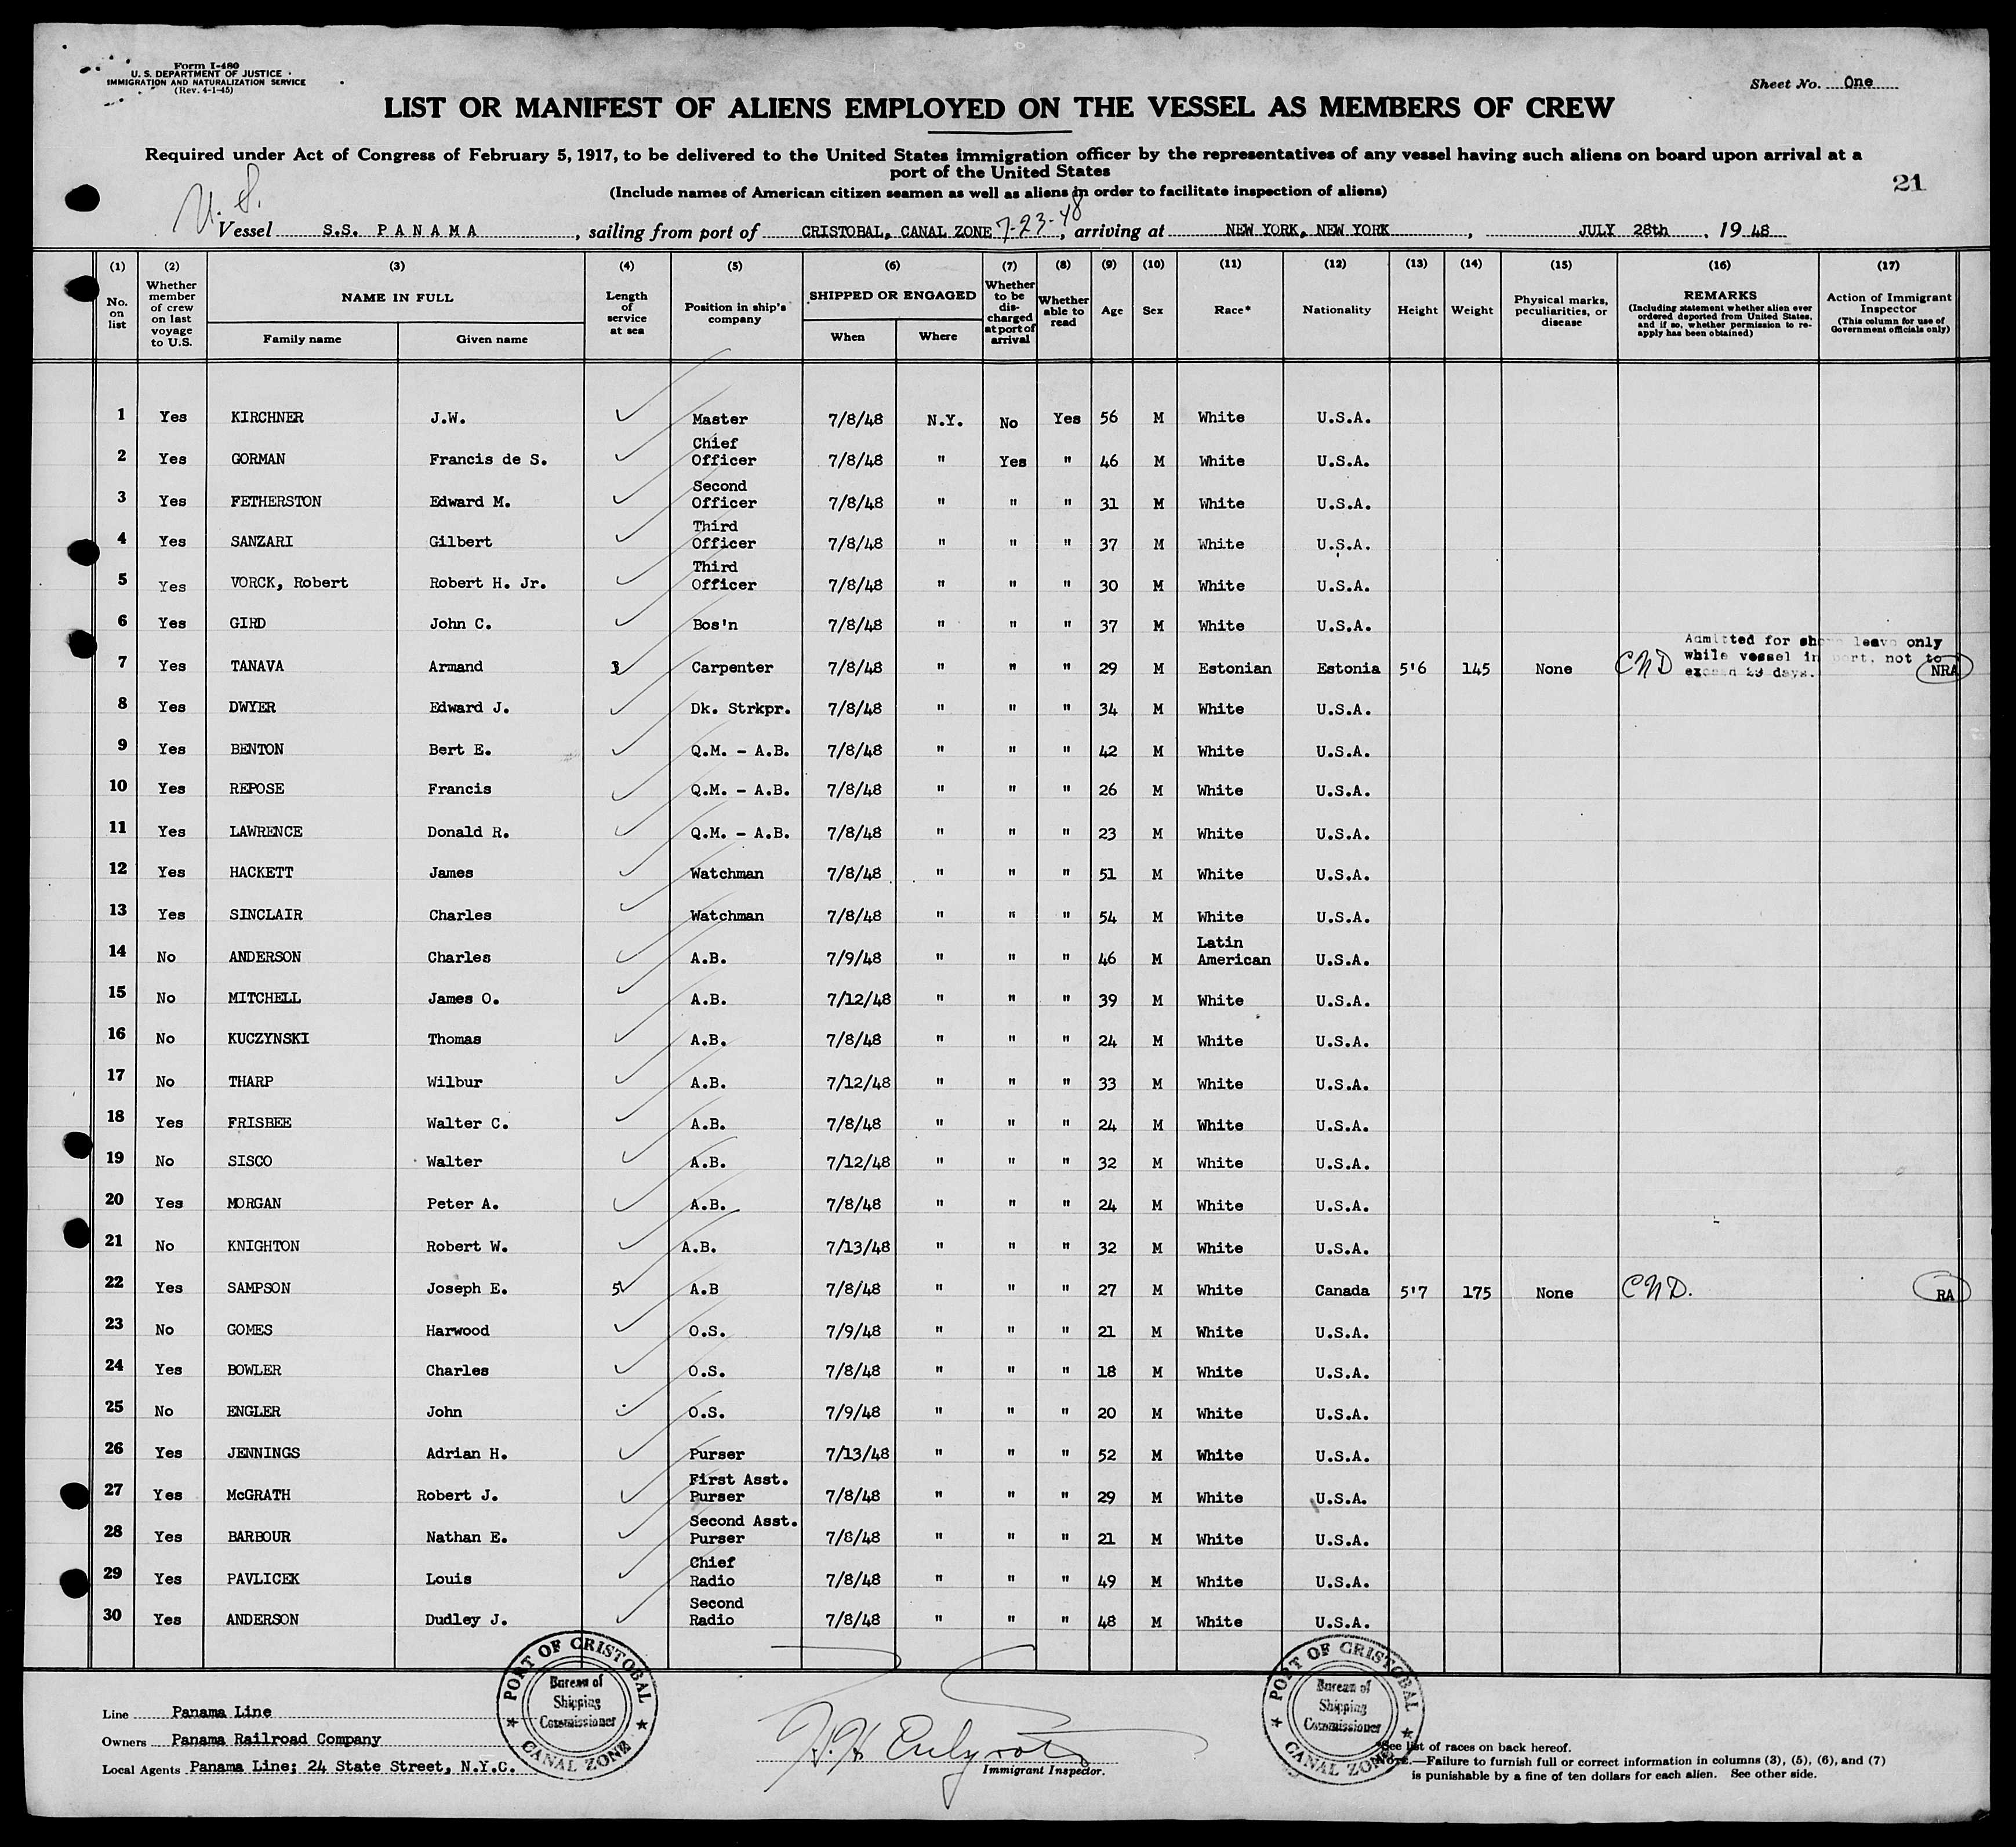 Form I-480
U. S. DEPARTMENT OF JUSTICE
IMMIGRATION AND NATURALIZATION SERVICE
(Rev. 4-1-45)
Sheet No. One
LIST OR MANIFEST OF ALIENS EMPLOYED ON THE VESSEL AS MEMBERS OF CREW
Required under Act of Congress of February 5, 1917, to be delivered to the United States immigration officer by the representatives of any vessel having such aliens on board upon arrival at a
port of the United States
(Include names of American citizen seamen as well as aliens in order to facilitate inspection of aliens)
21
U. S.
Vessel S.S. PANAMA, sailing from port of CRISTOBAL, CANAL ZONE 7-23-48, arriving at NEW YORK, NEW YORK, JULY 28th, 1948
(1) No. on list
(2) Whether member of crew on last voyage to U.S.
(3) NAME IN FULL Family name Given name
(4) Length of service at sea
(5) Position in ship's company
(6) SHIPPED OR ENGAGED When Where
(7) Whether to be discharged at port of arrival
(8) Whether able to read
(9) Age
(10) Sex
(11) Race*
(12) Nationality
(13) Height
(14) Weight
(15) Physical marks, peculiarities, or disease
(16) REMARKS (Including statement whether alien ever ordered deported from United States, and if so, whether permission to re-apply has been obtained)
(17) Action of Immigrant Inspector (This column for use of Government officials only)
1 Yes KIRCHNER J.W. Master 7/8/48 N.Y. No Yes 56 M White U.S.A.
2 Yes GORMAN Francis de S. Chief Officer 7/8/48 " Yes " 46 M White U.S.A.
3 Yes FETHERSTON Edward M. Second Officer 7/8/48 " " " 31 M White U.S.A.
4 Yes SANZARI Gilbert Third Officer 7/8/48 " " " 37 M White U.S.A.
5 Yes VORCK, Robert Robert H. Jr. Third Officer 7/8/48 " " " 30 M White U.S.A.
6 Yes GIRD John C. Bos'n 7/8/48 " " " 37 M White U.S.A.
7 Yes TANAVA Armand 3 Carpenter 7/8/48 " " " 29 M Estonian Estonia 5'6 145 None CND Admitted for shore leave only while vessel in port, not to exceed 29 days. NRA
8 Yes DWYER Edward J. Dk. Strkpr. 7/8/48 " " " 34 M White U.S.A.
9 Yes BENTON Bert E. Q.M. - A.B. 7/8/48 " " " 42 M White U.S.A.
10 Yes REPOSE Francis Q.M. - A.B. 7/8/48 " " " 26 M White U.S.A.
11 Yes LAWRENCE Donald R. Q.M. - A.B. 7/8/48 " " " 23 M White U.S.A.
12 Yes HACKETT James Watchman 7/8/48 " " " 51 M White U.S.A.
13 Yes SINCLAIR Charles Watchman 7/8/48 " " " 54 M White U.S.A.
14 No ANDERSON Charles A.B. 7/9/48 " " " 46 M Latin American U.S.A.
15 No MITCHELL James O. A.B. 7/12/48 " " " 39 M White U.S.A.
16 No KUCZYNSKI Thomas A.B. 7/8/48 " " " 24 M White U.S.A.
17 No THARP Wilbur A.B. 7/12/48 " " " 33 M White U.S.A.
18 Yes FRISBEE Walter C. A.B. 7/8/48 " " " 24 M White U.S.A.
19 No SISCO Walter A.B. 7/12/48 " " " 32 M White U.S.A.
20 Yes MORGAN Peter A. A.B. 7/8/48 " " " 24 M White U.S.A.
21 No KNIGHTON Robert W. A.B. 7/13/48 " " " 32 M White U.S.A.
22 Yes SAMPSON Joseph E. 5 A.B 7/8/48 " " " 27 M White Canada 5'7 175 None CND. RA
23 No GOMES Harwood O.S. 7/9/48 " " " 21 M White U.S.A.
24 Yes BOWLER Charles O.S. 7/8/48 " " " 18 M White U.S.A.
25 No ENGLER John O.S. 7/9/48 " " " 20 M White U.S.A.
26 Yes JENNINGS Adrian H. Purser 7/13/48 " " " 52 M White U.S.A.
27 Yes McGRATH Robert J. First Asst. Purser 7/8/48 " " " 29 M White U.S.A.
28 Yes BARBOUR Nathan E. Second Asst. Purser 7/8/48 " " " 21 M White U.S.A.
29 Yes PAVLICEK Louis Chief Radio 7/8/48 " " " 49 M White U.S.A.
30 Yes ANDERSON Dudley J. Second Radio 7/8/48 " " " 48 M White U.S.A.
PORT OF CRISTOBAL Bureau of Shipping Commissioner CANAL ZONE
PORT OF CRISTOBAL Bureau of Shipping Commissioner CANAL ZONE
Line Panama Line
Owners Panama Railroad Company
Local Agents Panama Line; 24 State Street, N.Y.C.
Immigrant Inspector.
*See list of races on back hereof.
NOTE.—Failure to furnish full or correct information in columns (3), (5), (6), and (7)
is punishable by a fine of ten dollars for each alien. See other side.